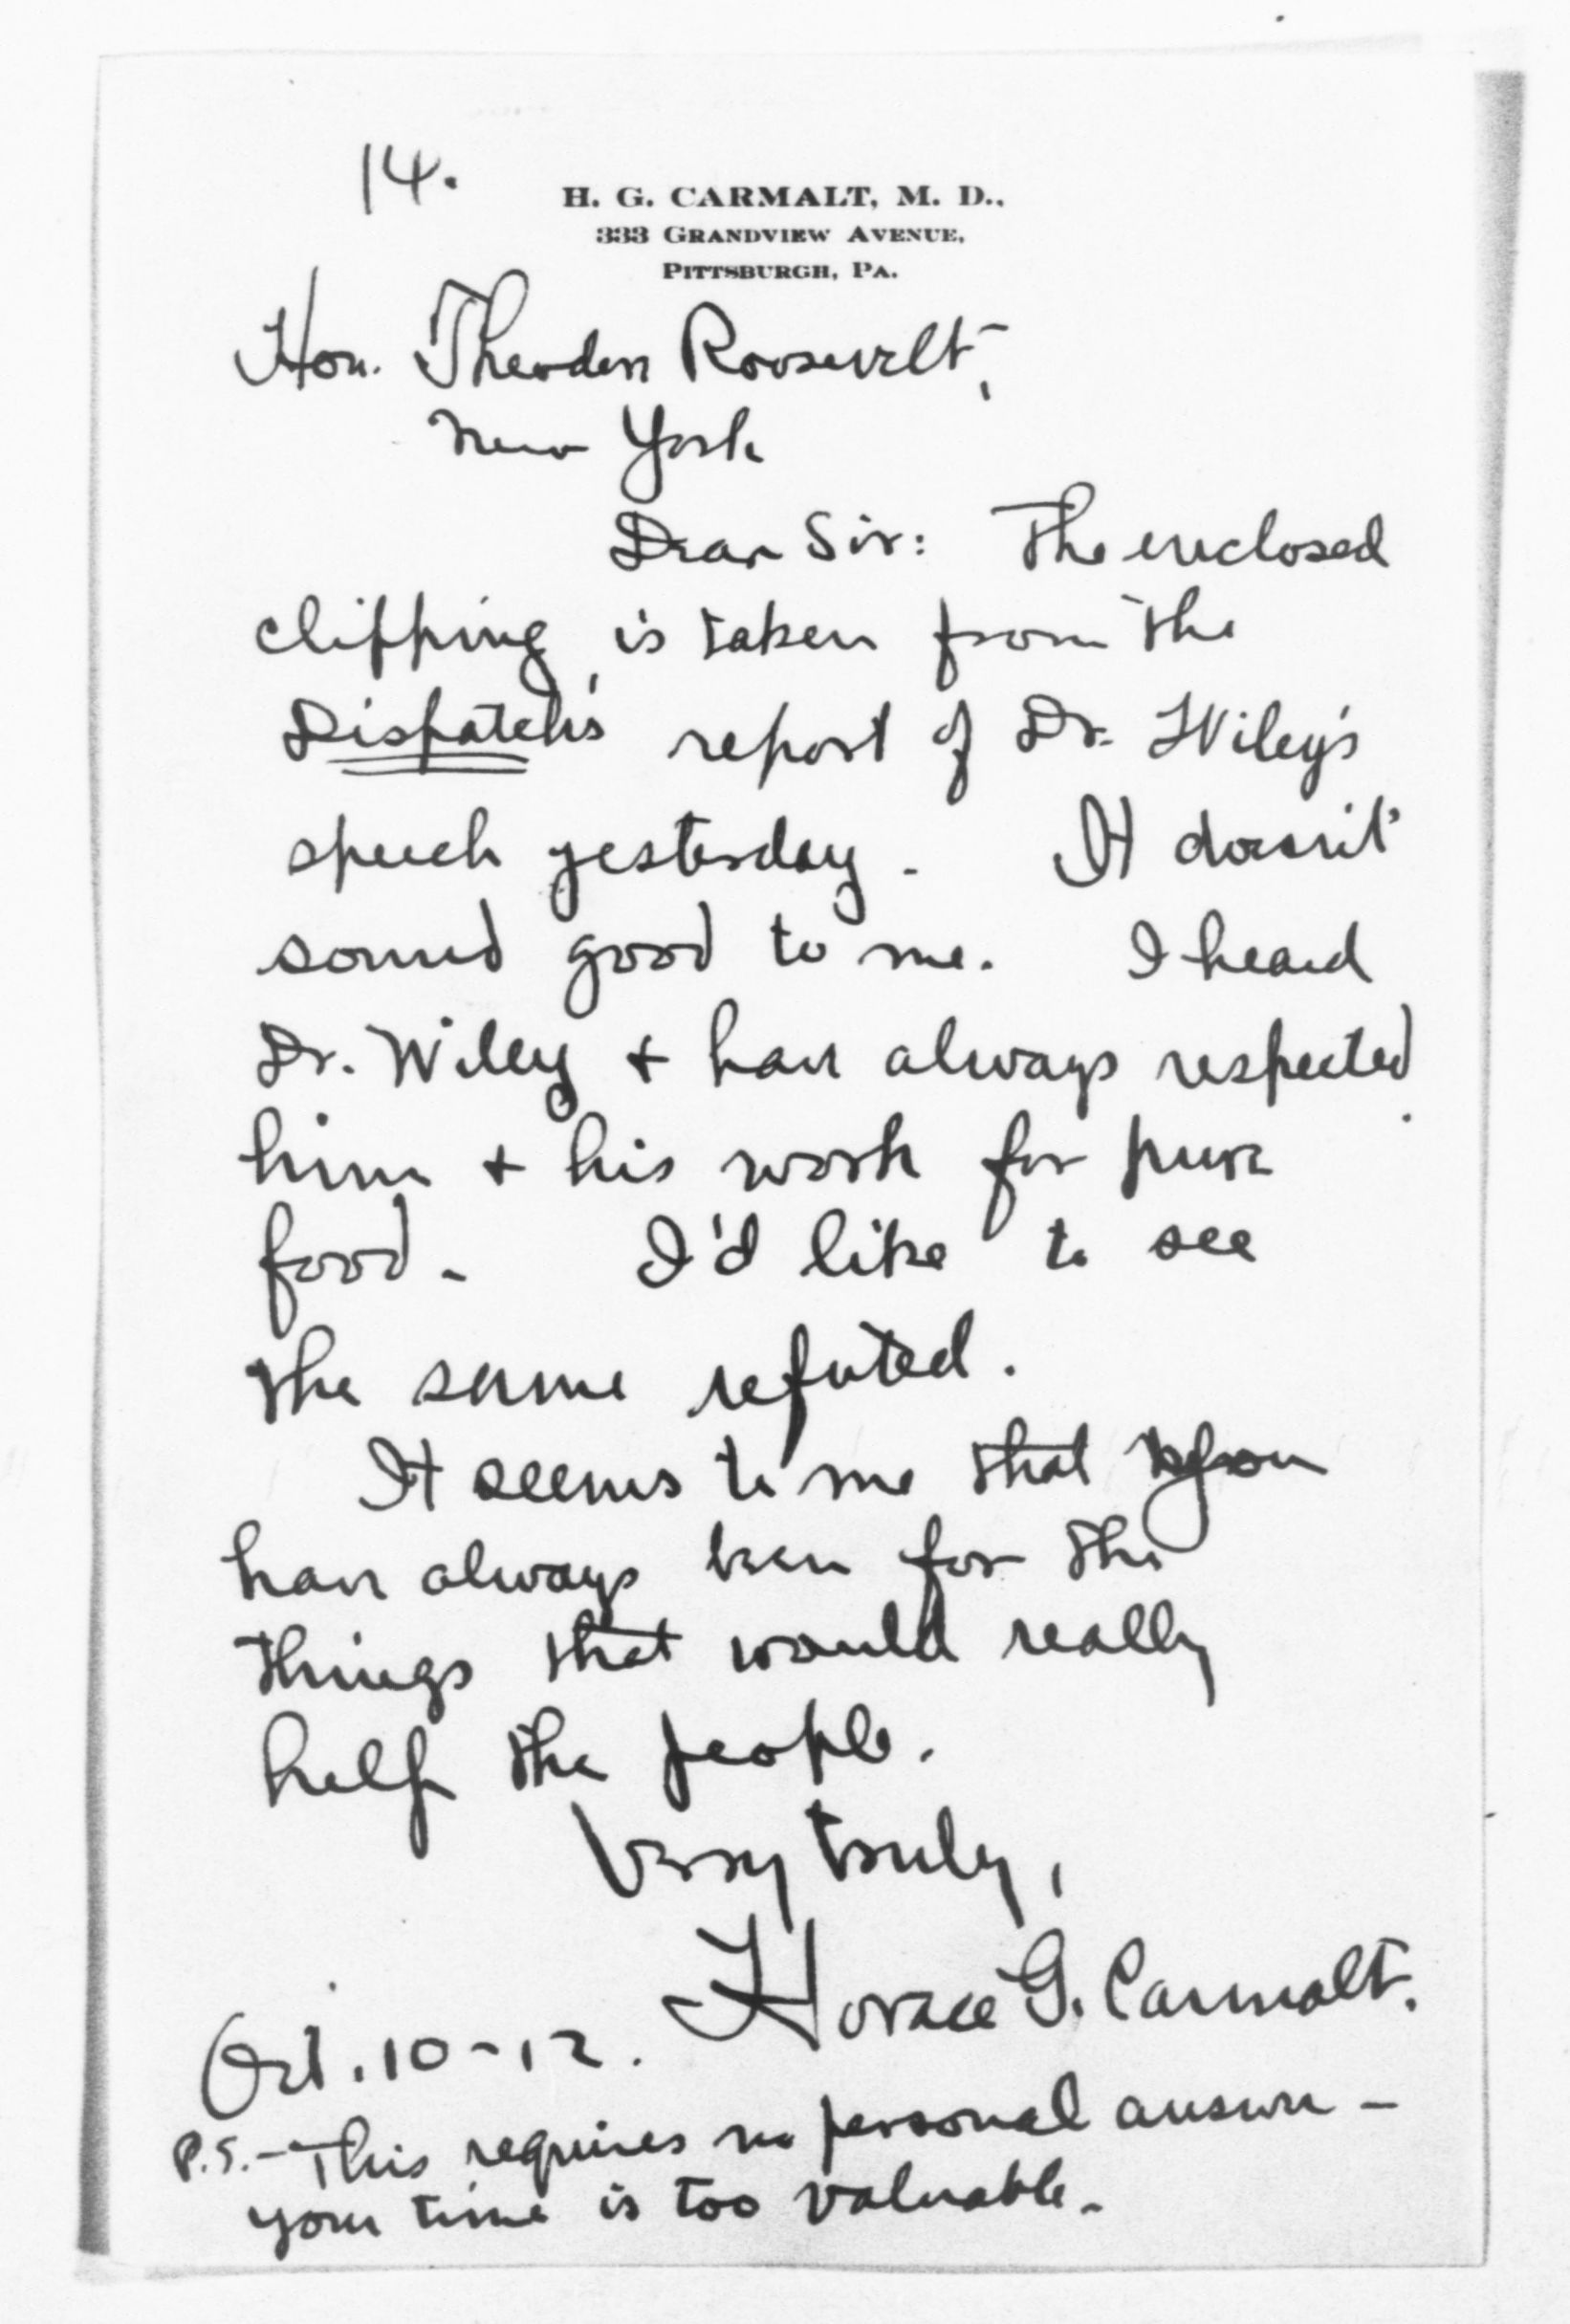 14.
H. G. CARMALT, M. D.,
333 GRANDVIEW AVENUE,
PITTSBURGH, PA.
Hon. Theodore Roosevelt,
New York
Dear Sir: The enclosed
clipping is taken from the
Dispatch's report of Dr. Wiley's
speech yesterday. It doesn't
sound good to me. I heard
Dr. Wiley & have always respected
him & his work for pure
food. I'd like to see
the same refuted.
It seems to me that you
have always been for the
things that would really
help the people.
Very truly,
Horace G. Carmalt.
Oct. 10-12.
P.S.- This requires no personal answer -
your time is too valuable.